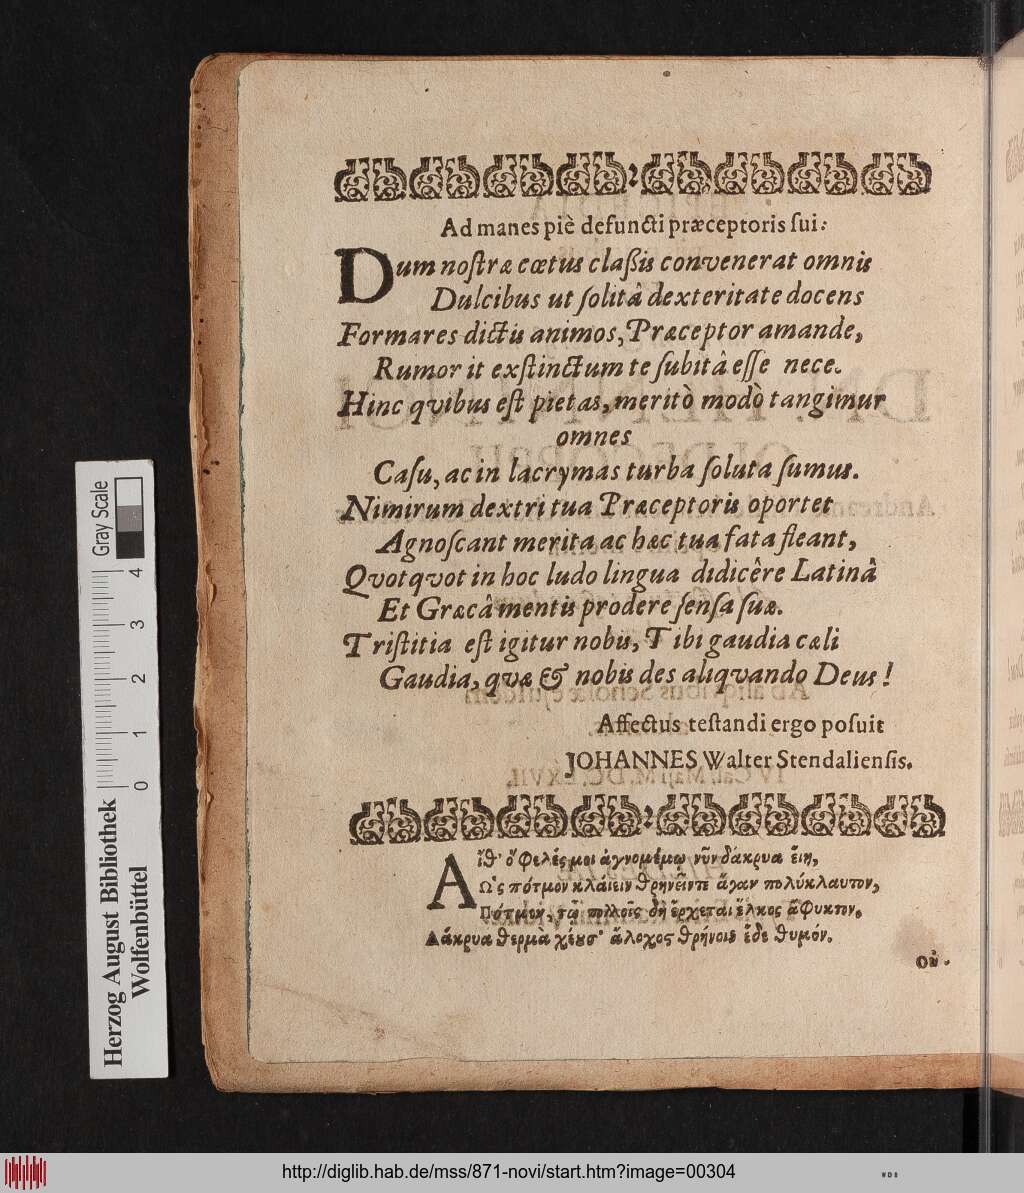 Ad manes piè defuncti præceptoris ſui:
Dum noſtræ cœtus claßis convenerat omnis
Dulcibus ut ſolitâ dexteritate docens
Formares dictis animos, Præceptor amande,
Rumor it exſtinctum te ſubitâ eſſe nece.
Hinc qvibus eſt pietas, meritò modò tangimur
omnes
Caſu, ac in lacrymas turba ſoluta ſumus.
Nimirum dextri tua Præceptoris oportet
Agnoſcant merita ac hæc tua fata fleant,
Qvotqvot in hoc ludo lingua didicêre Latinâ
Et Græcâ mentis prodere ſenſa ſuæ.
Triſtitia eſt igitur nobis, Tibi gaudia cæli
Gaudia, qvæ & nobis des aliqvando Deus!
Affectus teſtandi ergo poſuit
JOHANNES Walter Stendalienſis.
Αἴθ' ὄφελές μοι ἀγνομένῳ νῦν δάκρυα εἴη,
Ὡς πότμον κλάιειν θρηνεῖν τε ἄγαν πολύκλαυτον,
Πότμον, τῷ πολλοῖς δὴ ἔρχεται ἕλκος ἄφυκτον.
Δάκρυα θερμὰ χέουσ' ἄλοχος θρήνοις ἔδε θυμόν.
Οὐ.
Herzog August Bibliothek
Wolfenbüttel
Gray Scale
0 1 2 3 4
http://diglib.hab.de/mss/871-novi/start.htm?image=00304